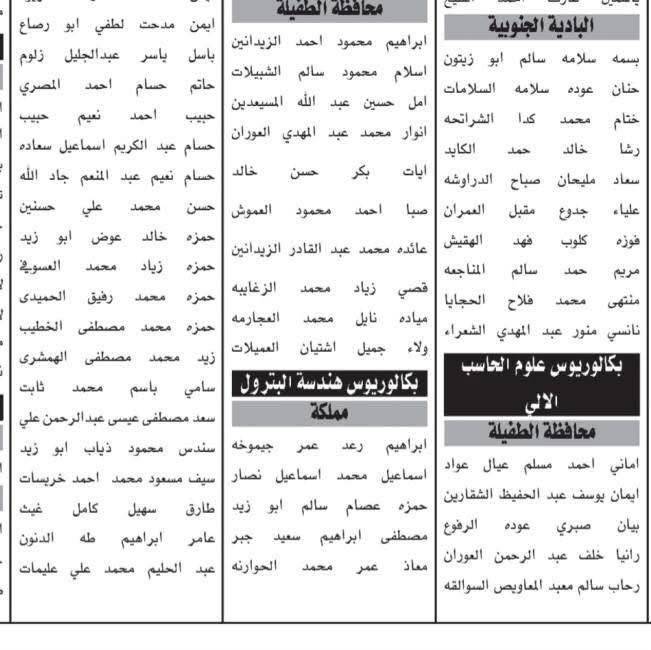 البادية الجنوبية
بسمه سلامه سالم ابو زيتون
حنان عوده سلامه السلامات
ختام محمد كدا الشراتحه
رشا خالد حمد الكايد
سعاد مليحان صباح الدراوشه
علياء جدوع مقبل العمران
فوزه كلوب فهد الهقيش
مريم حمد سالم المناجعه
منتهى محمد فلاح الحجايا
نانسي منور عبد المهدي الشعراء
بكالوريوس علوم الحاسب
الالي
محافظة الطفيلة
اماني احمد مسلم عيال عواد
ايمان يوسف عبد الحفيظ الشقارين
بيان صبري عوده الرفوع
رانيا خلف عبد الرحمن العوران
رحاب سالم معبد المعاويص السوالقه
محافظة الطفيلة
ابراهيم محمود احمد الزيدانين
اسلام محمود سالم الشبيلات
امل حسين عبد الله المسيعدين
انوار محمد عبد المهدي العوران
ايات بكر حسن خالد
صبا احمد محمود العموش
عائده محمد عبد القادر الزيدانين
قصي زياد محمد الزغايبه
مياده نايل محمد العجارمه
ولاء جميل اشتيان العميلات
بكالوريوس هندسة البترول
مملكة
ابراهيم رعد عمر جيموخه
اسماعيل محمد اسماعيل نصار
حمزه عصام سالم ابو زيد
مصطفى ابراهيم سعيد جبر
معاذ عمر محمد الحوارنه
ايمن مدحت لطفي ابو رصاع
باسل ياسر عبدالجليل زلوم
حاتم حسام احمد المصري
حبيب احمد نعيم حبيب
حسام عبد الكريم اسماعيل سعاده
حسام نعيم عبد المنعم جاد الله
حسن محمد علي حسنين
حمزه خالد عوض ابو زيد
حمزه زياد محمد العسوفي
حمزه محمد رفيق الحميدى
حمزه محمد مصطفى الخطيب
زيد محمد مصطفى الهمشرى
سامي باسم محمد ثابت
سعد مصطفى عيسى عبدالرحمن علي
سندس محمود ذياب ابو زيد
سيف مسعود محمد احمد خريسات
طارق سهيل كامل غيث
عامر ابراهيم طه الدنون
عبد الحليم محمد علي عليمات